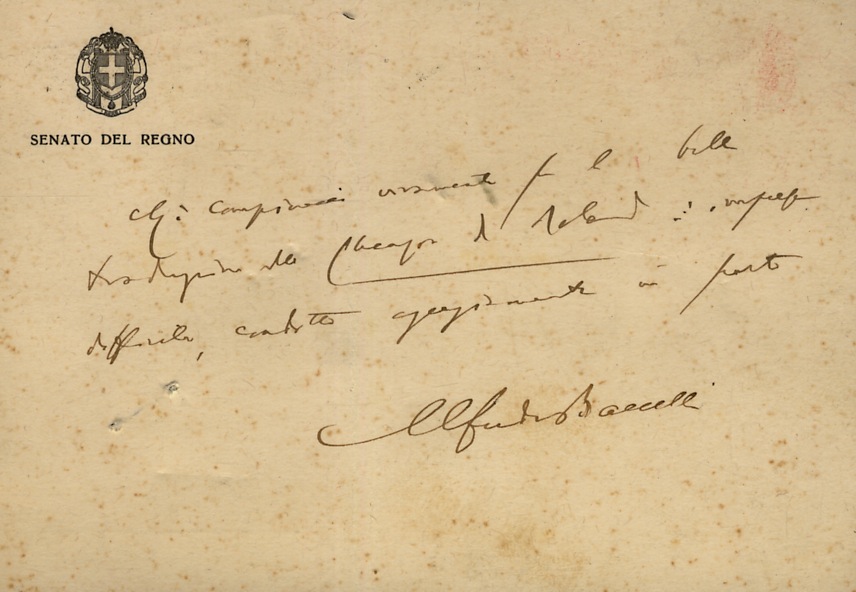 SENATO DEL REGNO
mi compiaccio vivamente per la bella
traduzione della Chanson de Roland: impresa
difficile, condotta egregiamente in porto
Alfredo Baccelli